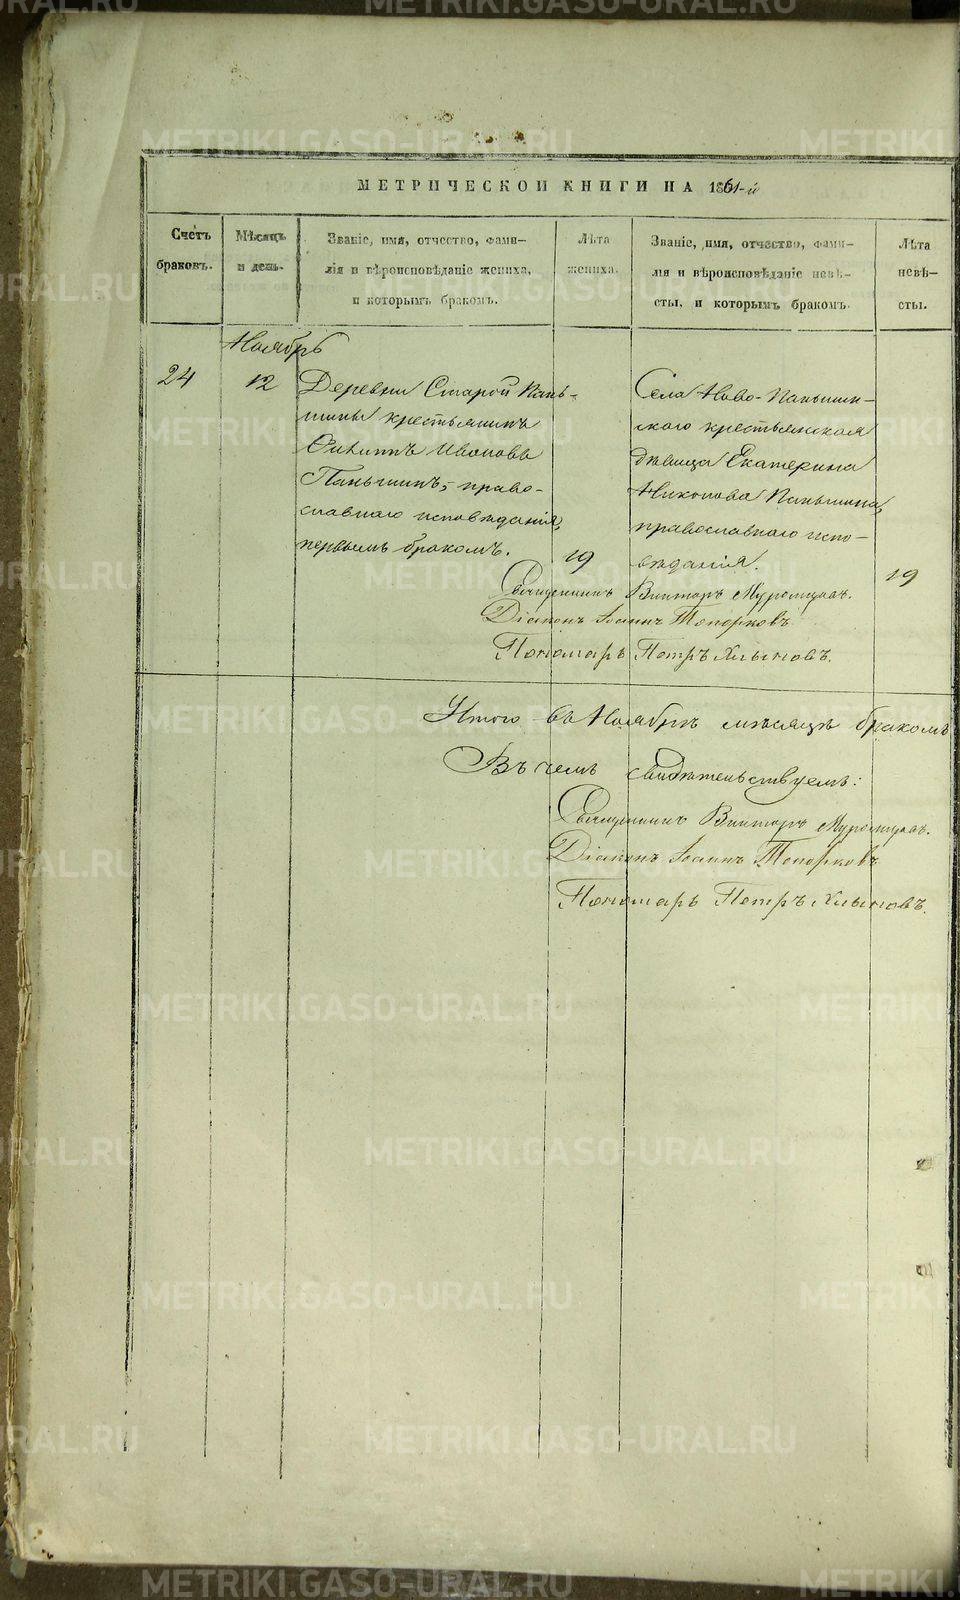 МЕТРИЧЕСКОЙ КНИГИ НА 1861-й
Счетъ браковъ.
Мѣсяцъ и день.
Званіе, имя, отчество, фами-
лія и вѣроисповѣданіе жениха,
и которымъ бракомъ.
Лѣта жениха.
Званіе, имя, отчество, фами-
лія и вѣроисповѣданіе невѣ-
сты, и которымъ бракомъ.
Лѣта невѣ-
сты.
Ноябрь
24
12
Деревни Старой Пань-
шины крестьянинъ
Филиппъ Ивановъ
Паньшинъ, право-
славнаго исповѣданія,
первымъ бракомъ.
19
Села Ново-Паньшин-
скаго крестьянская
дѣвица Екатерина
Никонова Паньшина,
православнаго испо-
вѣданія.
19
Священникъ Викторъ
Діаконъ Іоаннъ Топорковъ
Пономарь Петръ Хлыновъ.
Итого въ Ноябрѣ мѣсяцѣ бракомъ
Въ чемъ свидѣтельствуемъ:
Священникъ Викторъ
Діаконъ Іоаннъ Топорковъ
Пономарь Петръ Хлыновъ.
METRIKI.GASO-URAL.RU